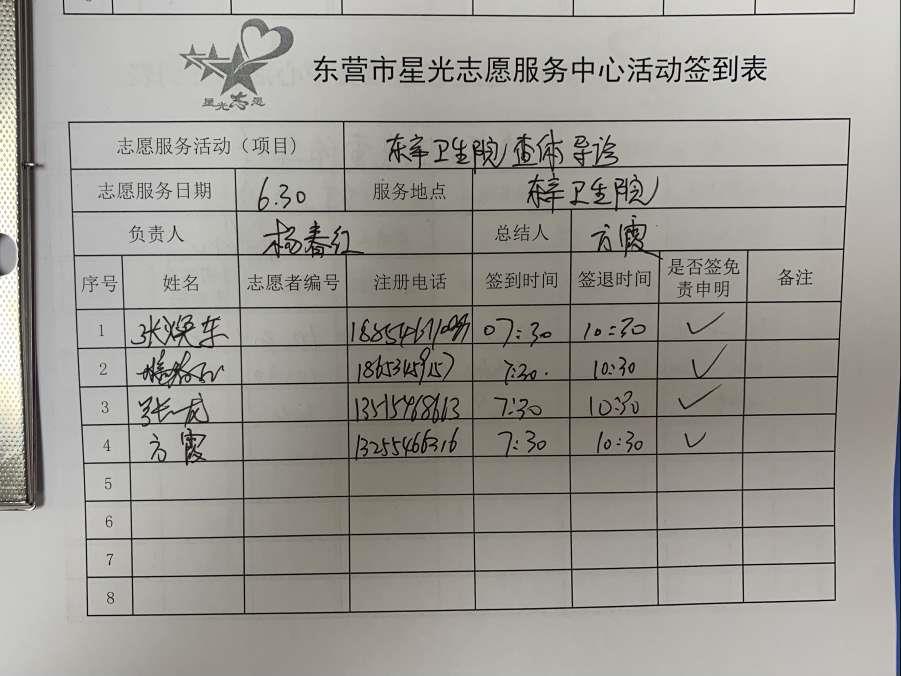 星光志愿
东营市星光志愿服务中心活动签到表
志愿服务活动（项目） 东辛卫生院查体导诊
志愿服务日期 6.30 服务地点 东辛卫生院
负责人 杨春红 总结人 方霞
序号 姓名 志愿者编号 注册电话 签到时间 签退时间 是否签免责申明 备注
1 张焕东 07:30 10:30 ✓
2 18653459157 7:30. 10:30 ✓
3 张一龙 13515468613 7:30 10:30 ✓
4 方霞 13255466316 7:30 10:30 ✓
5
6
7
8